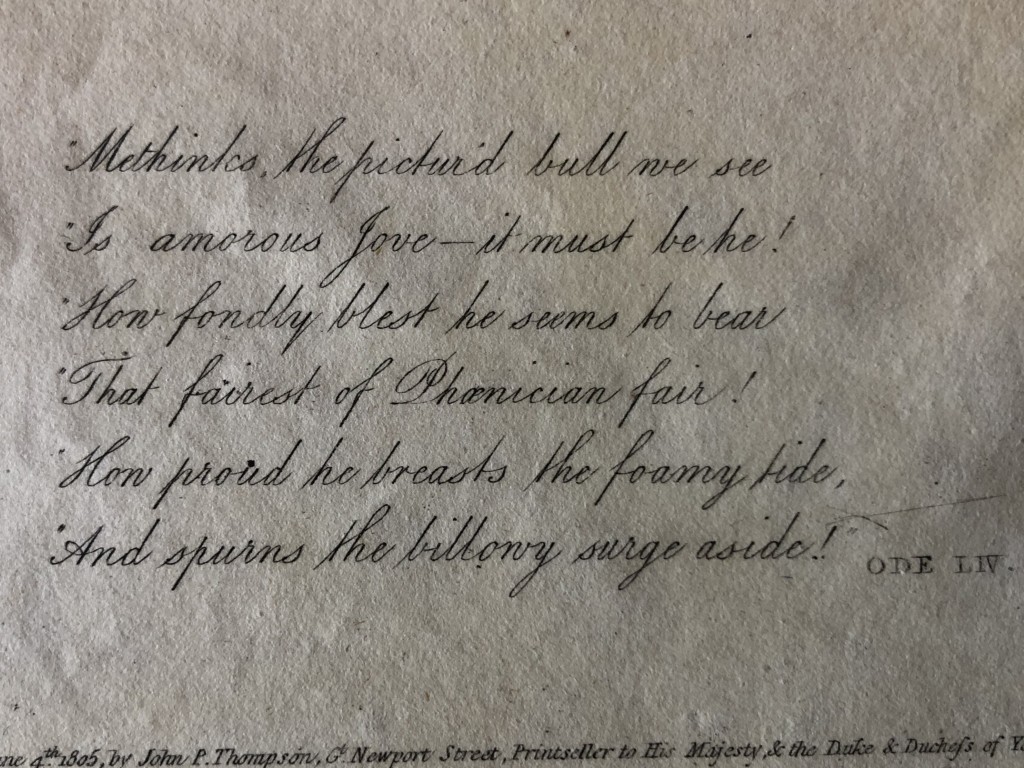 "Methinks, the pictur'd bull we see
"Is amorous Jove—it must be he!
"How fondly blest he seems to bear
"That fairest of Phœnician fair!
"How proud he breasts the foamy tide,
"And spurns the billowy surge aside!" ODE LIV.
4th. 1805, by John P. Thompson, Gt. Newport Street, Printseller to His Majesty, & the Duke & Duchess of